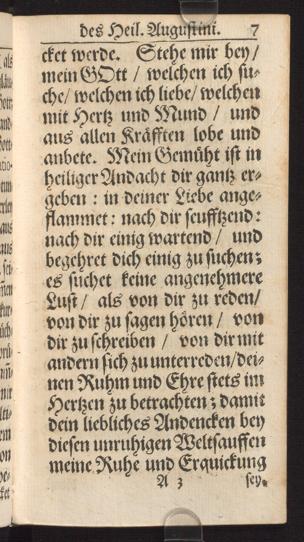 des Heil. Augustini. 7
cket werde. Stehe mir bey /
mein GOtt / welchen ich su-
che / welchen ich liebe / welchen
mit Hertz und Mund / und
aus allen Kräfften lobe und
anbete. Mein Gemüht ist in
heiliger Andacht dir gantz er-
geben : in deiner Liebe ange-
flammet : nach dir seufftzend :
nach dir einig wartend / und
begehret dich einig zu suchen ;
es suchet keine angenehmere
Lust / als von dir zu reden /
von dir zu sagen hören / von
dir zu schreiben / von dir mit
andern sich zu unterreden / dei-
nen Ruhm und Ehre stets im
Hertzen zu betrachten ; damit
dein liebliches Andencken bey
diesen unruhigen Weltsauffen
meine Ruhe und Erquickung
A 3 sey.